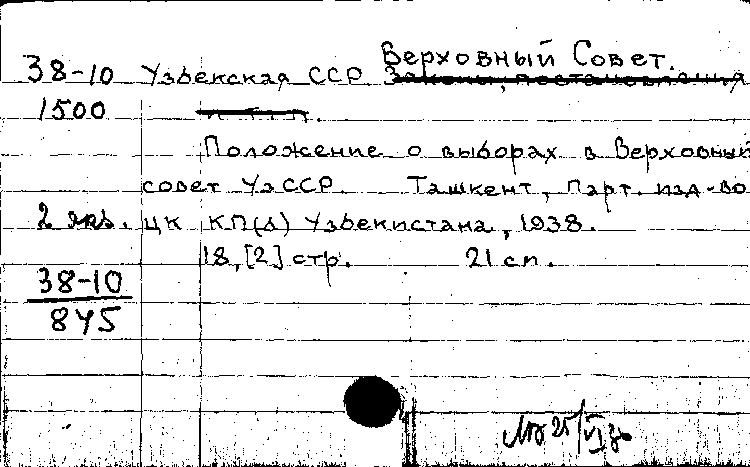 Верховный Совет.
38-10 Узбекская ССР Законы, постановления
1500 и т.п.
Положение о выборах в Верховный
совет УзССР. Ташкент, Парт. изд-во
2 экз. ЦК КП(б) Узбекистана, 1938.
18, [2] стр. 21 сп.
38-10
845